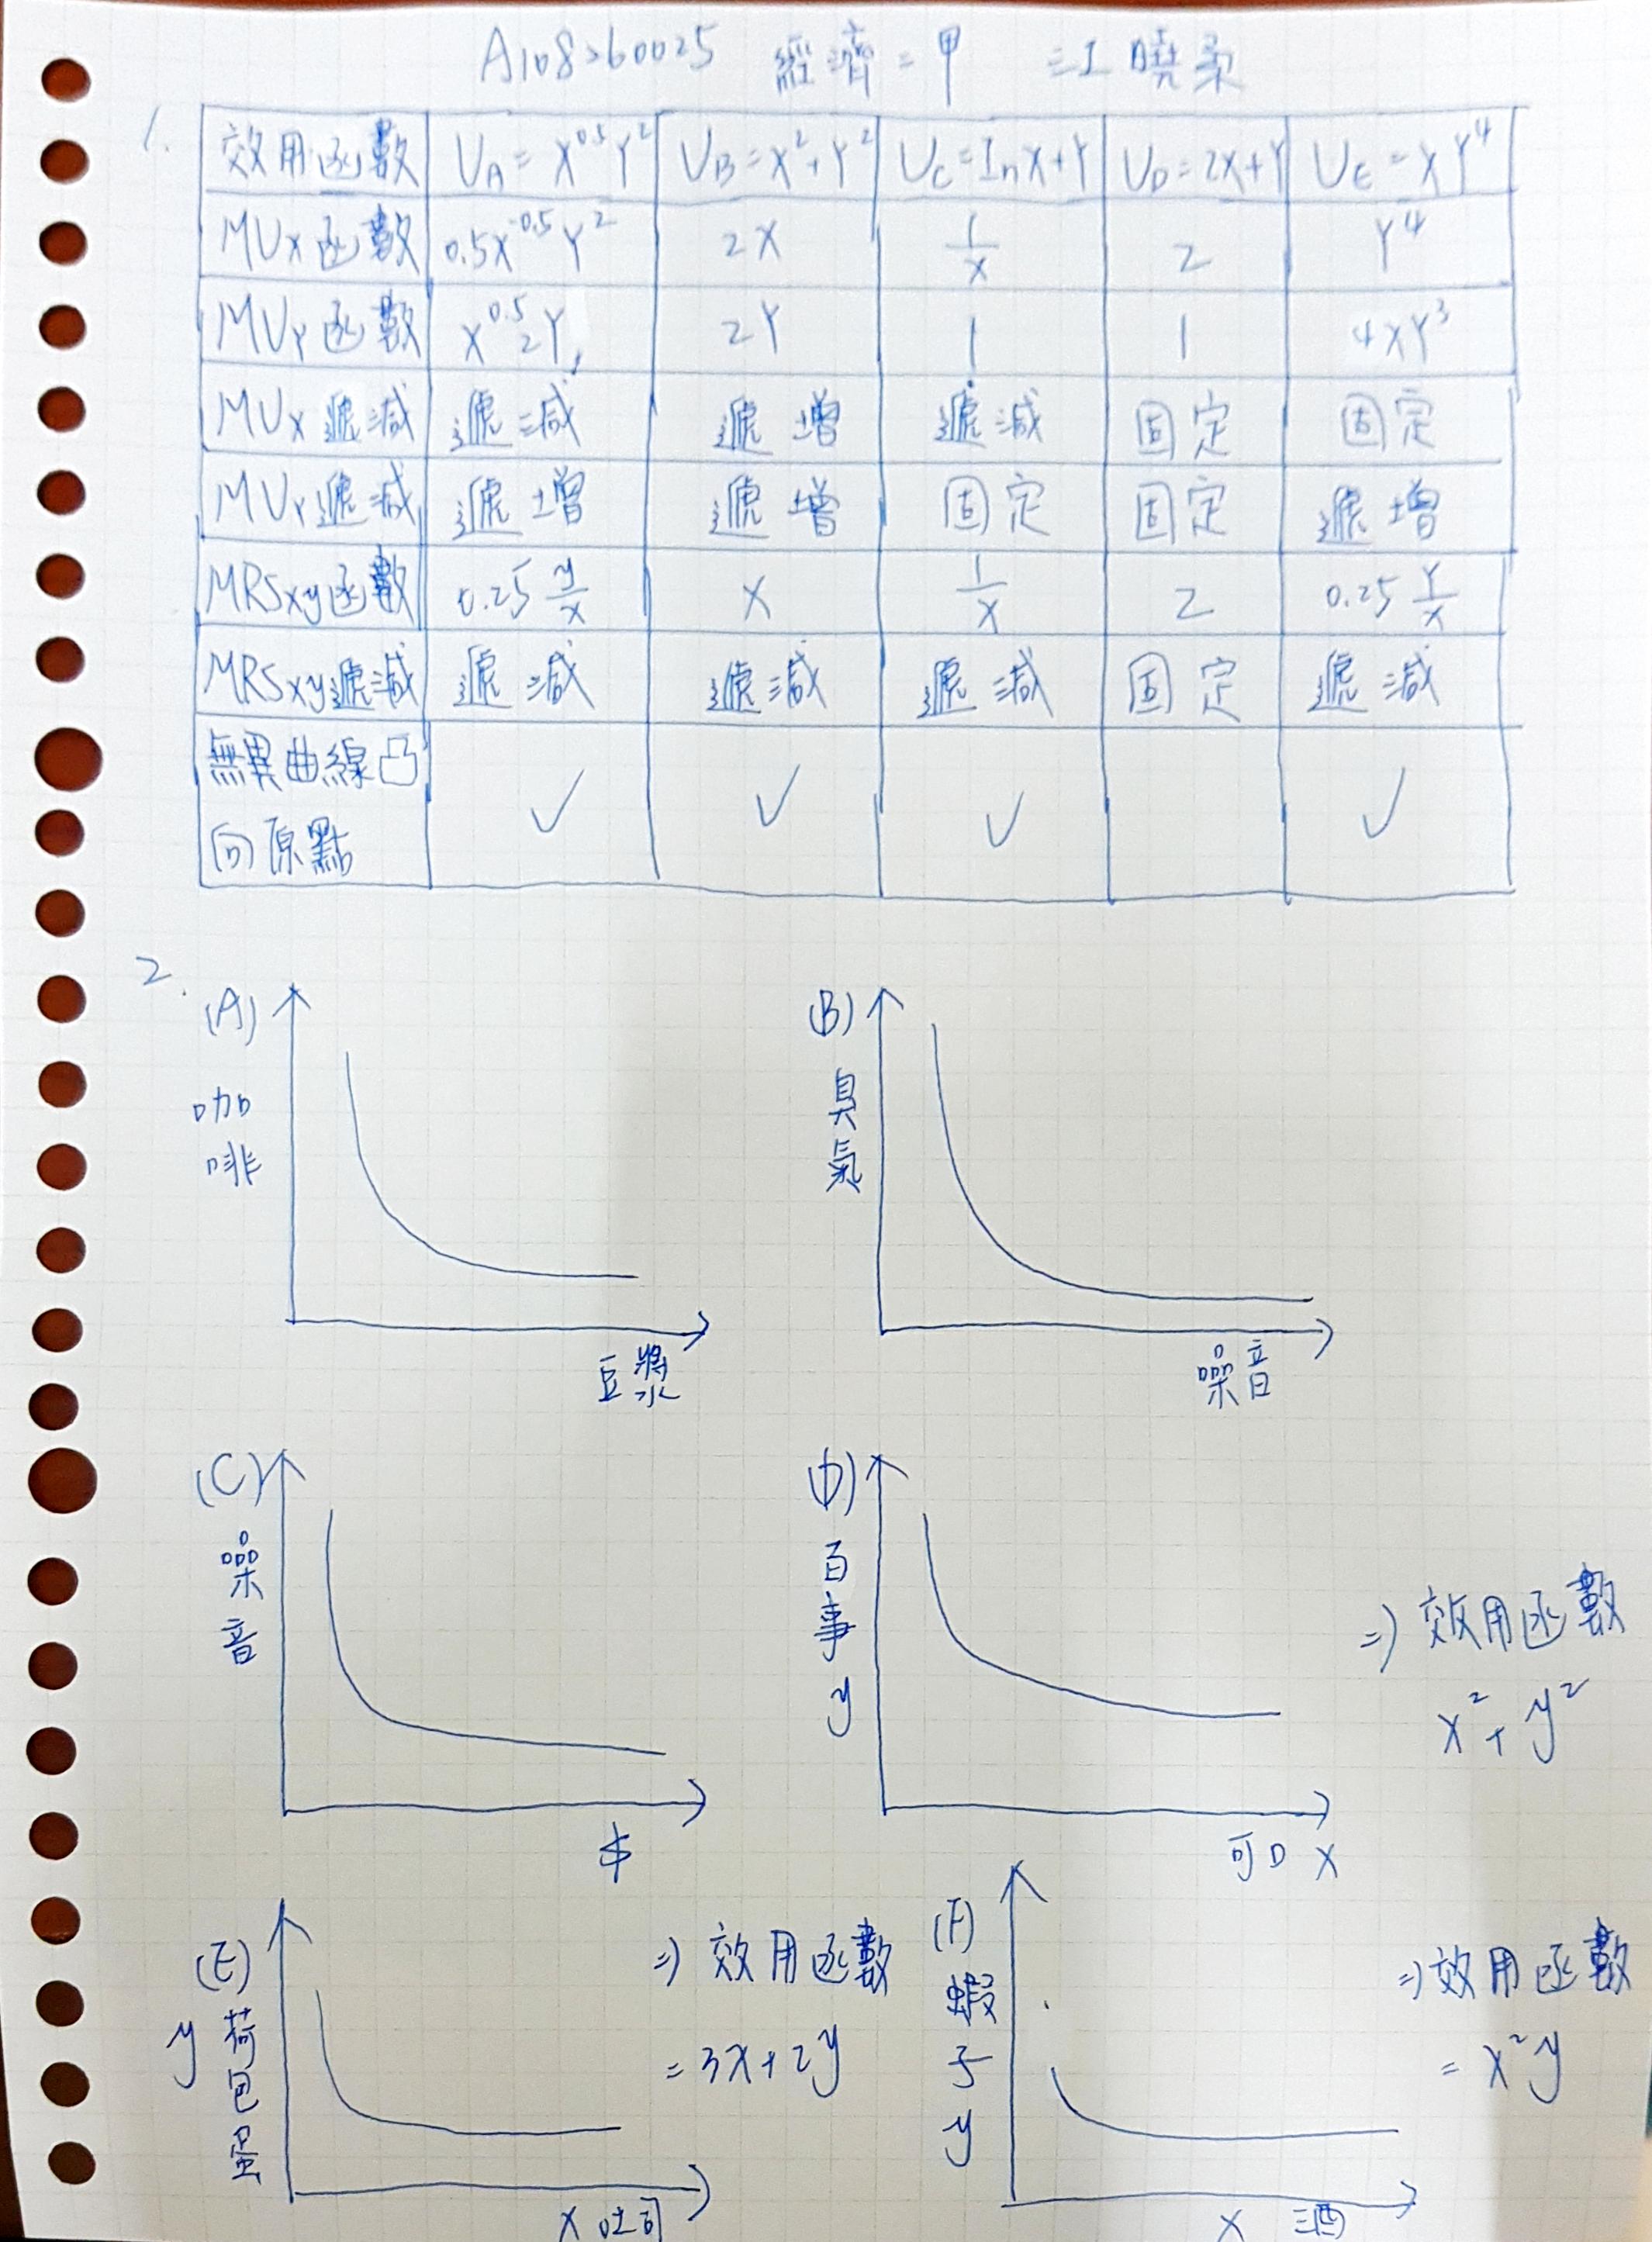 A108260025 經濟二甲 江曉柔
1.
效用函數 U_A = X^0.5 Y^2 U_B = X^2 + Y^2 U_C = InX+Y U_D = 2X+Y U_E = XY^4
MUx函數 0.5X^-0.5 Y^2 2X 1/X 2 Y^4
MUY函數 X^0.5 2Y 2Y 1 1 4XY^3
MUx遞減 遞減 遞增 遞減 固定 固定
MUY遞減 遞增 遞增 固定 固定 遞增
MRSxy函數 0.25 y/x X 1/X 2 0.25 Y/X
MRSxy遞減 遞減 遞減 遞減 固定 遞減
無異曲線凸
向原點 ✓ ✓ ✓ ✓
2.
(A) 咖啡 豆漿
(B) 臭氣 噪音
(C) 噪音 $
(D) 百事 y 可口 X
⇒ 效用函數
x^2 + y^2
(E) y 荷包蛋 X 吐司
⇒ 效用函數
= 3x+2y
(F) 蝦子 y X 酒
⇒ 效用函數
= x^2y